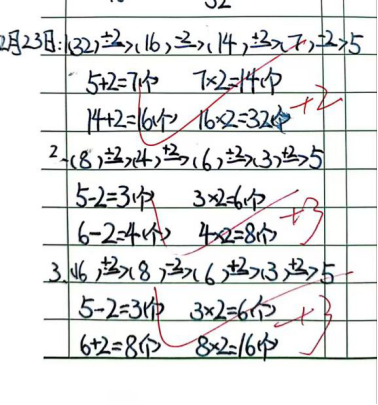 32
2月23日:(32)÷2>(16)-2>(14)÷2>(7)-2>5
5+2=7个 7×2=14个
14+2=16个 16×2=32个 +2
2.(8)÷2>(4)+2>(6)÷2>(3)+2>5
5-2=3个 3×2=6个
6-2=4个 4×2=8个 +3
3.(16)÷2>(8)-2>(6)÷2>(3)+2>5
5-2=3个 3×2=6个
6+2=8个 8×2=16个 +3